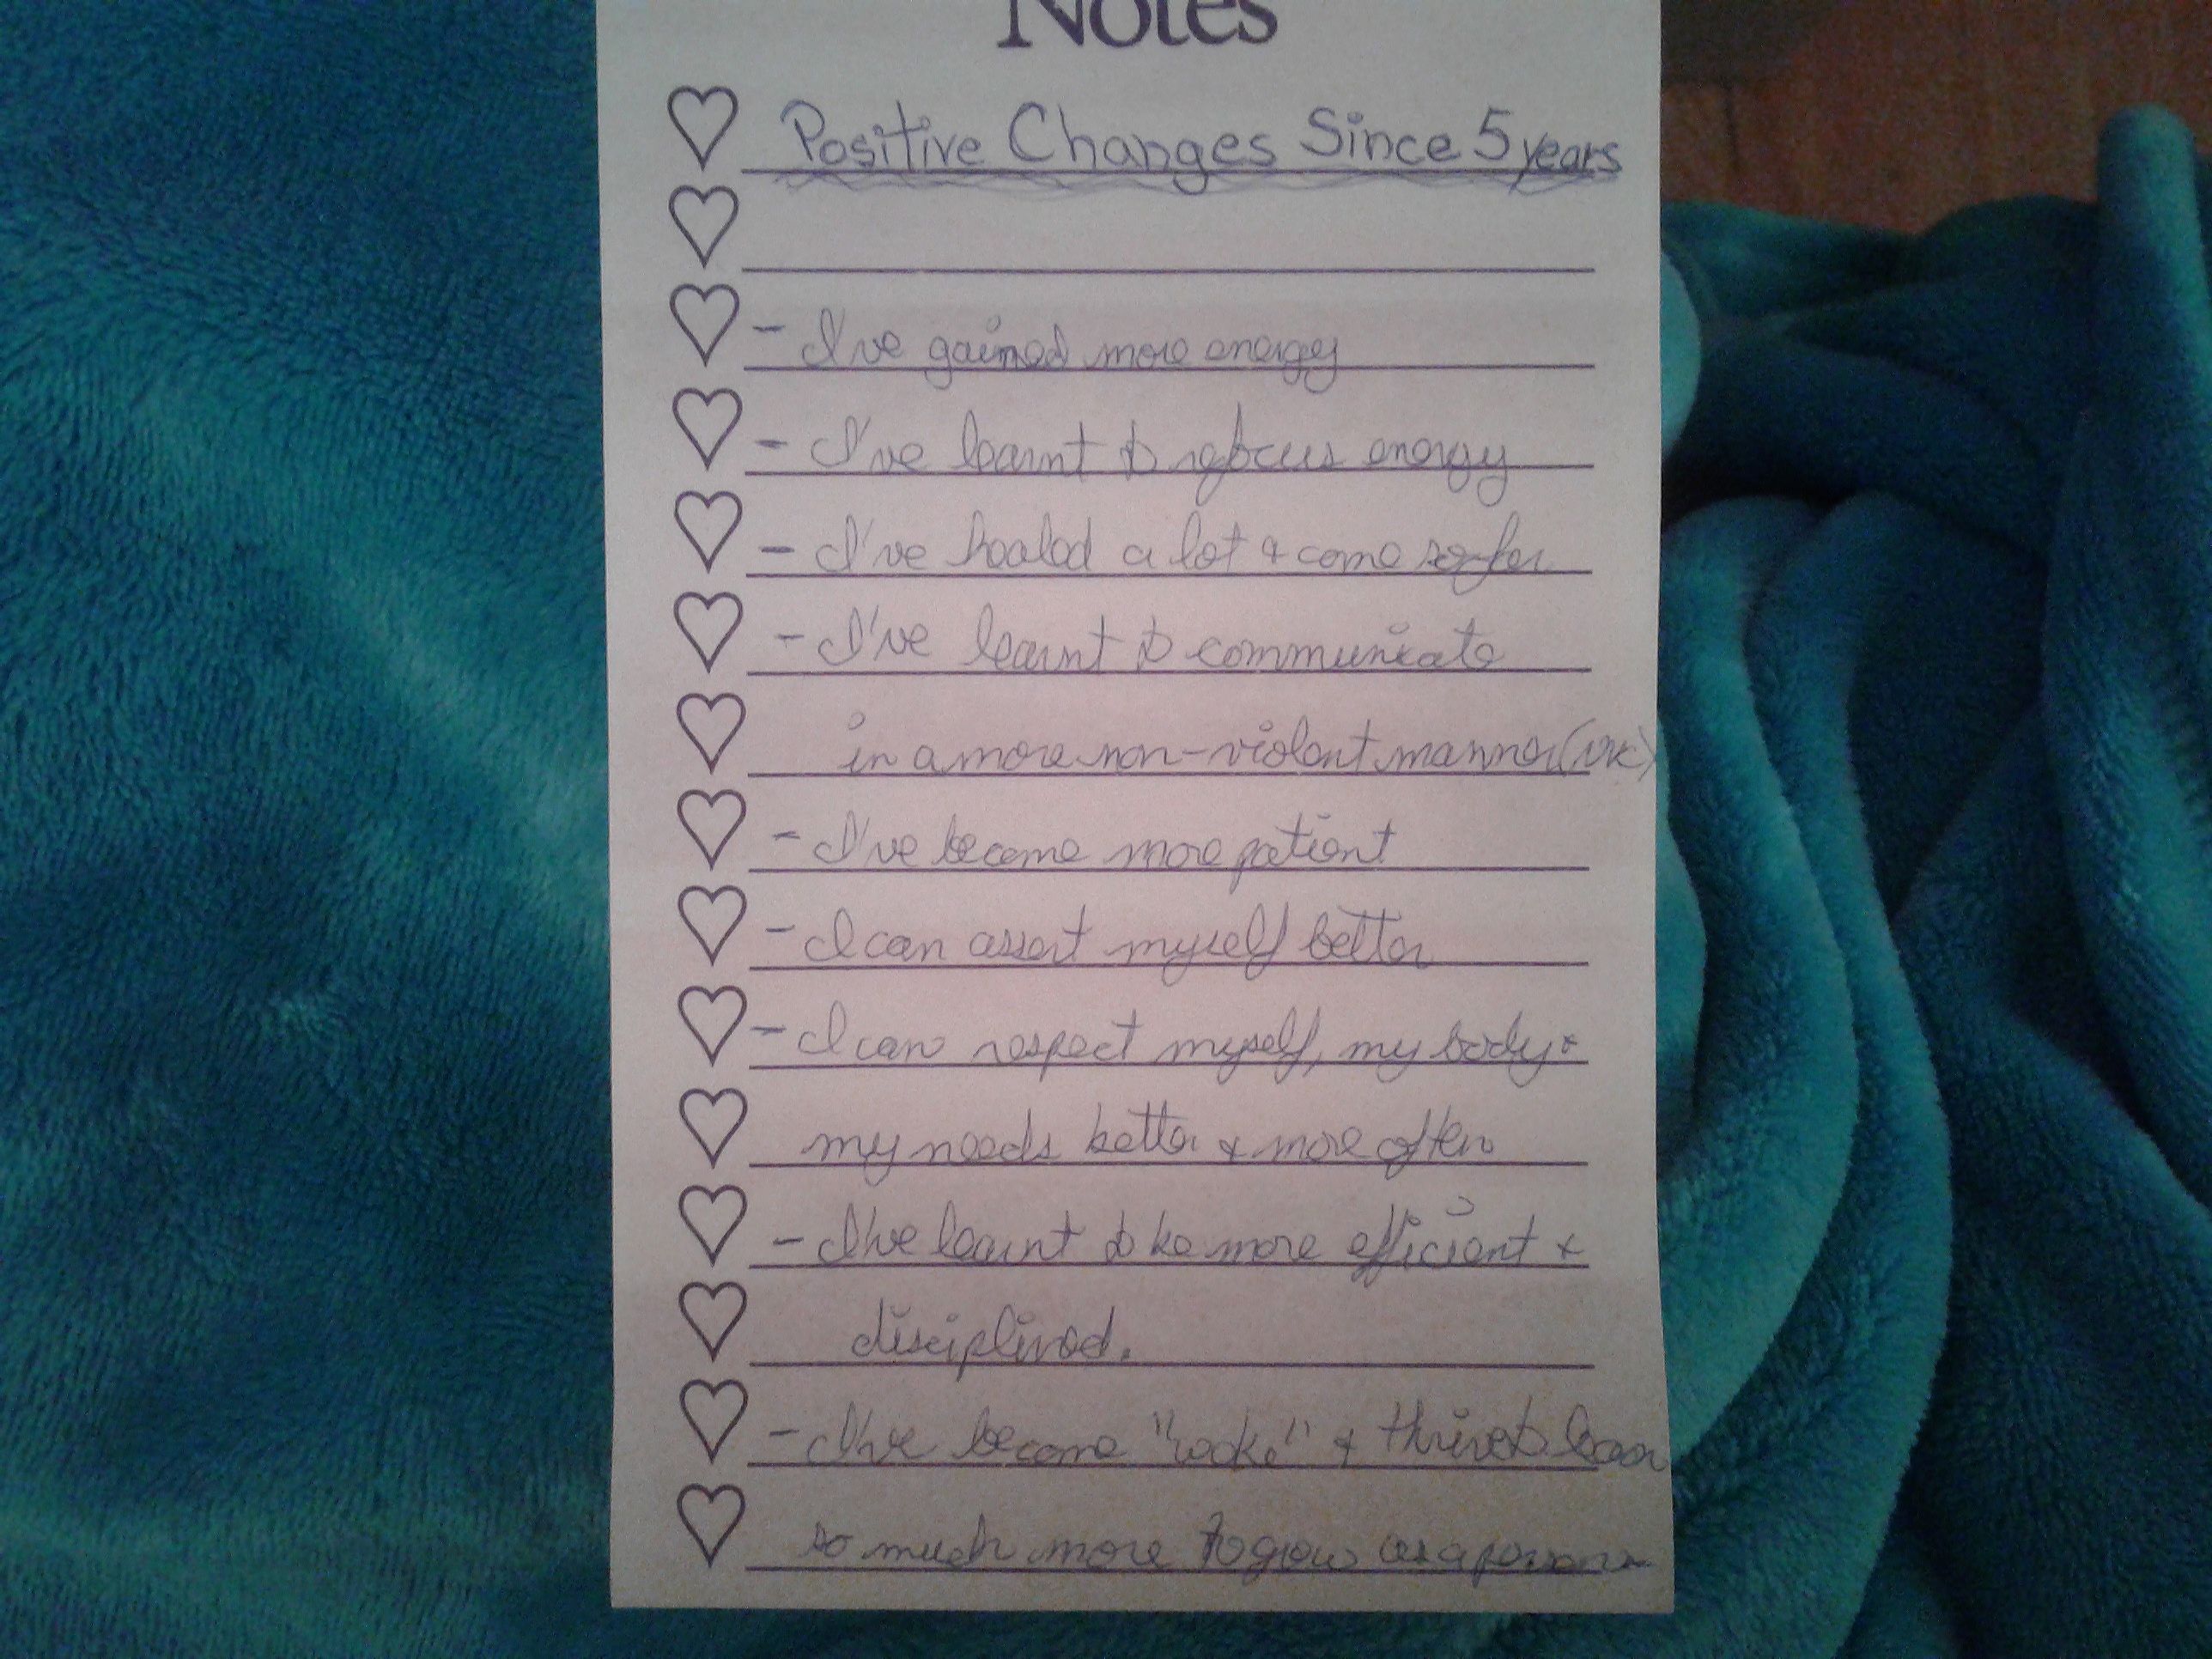 Notes
Positive Changes Since 5 years
- I've gained more energy
- I've learnt to refocus energy
- I've healed a lot & come so far
- I've learnt to communicate
in a more non-violent manner
- I've become more patient
- I can assert myself better
- I can respect myself, my body &
my needs better & more often
- I've learnt to be more efficient &
disciplined.
- I've become "woke" & thrive to learn
so much more to grow as a person